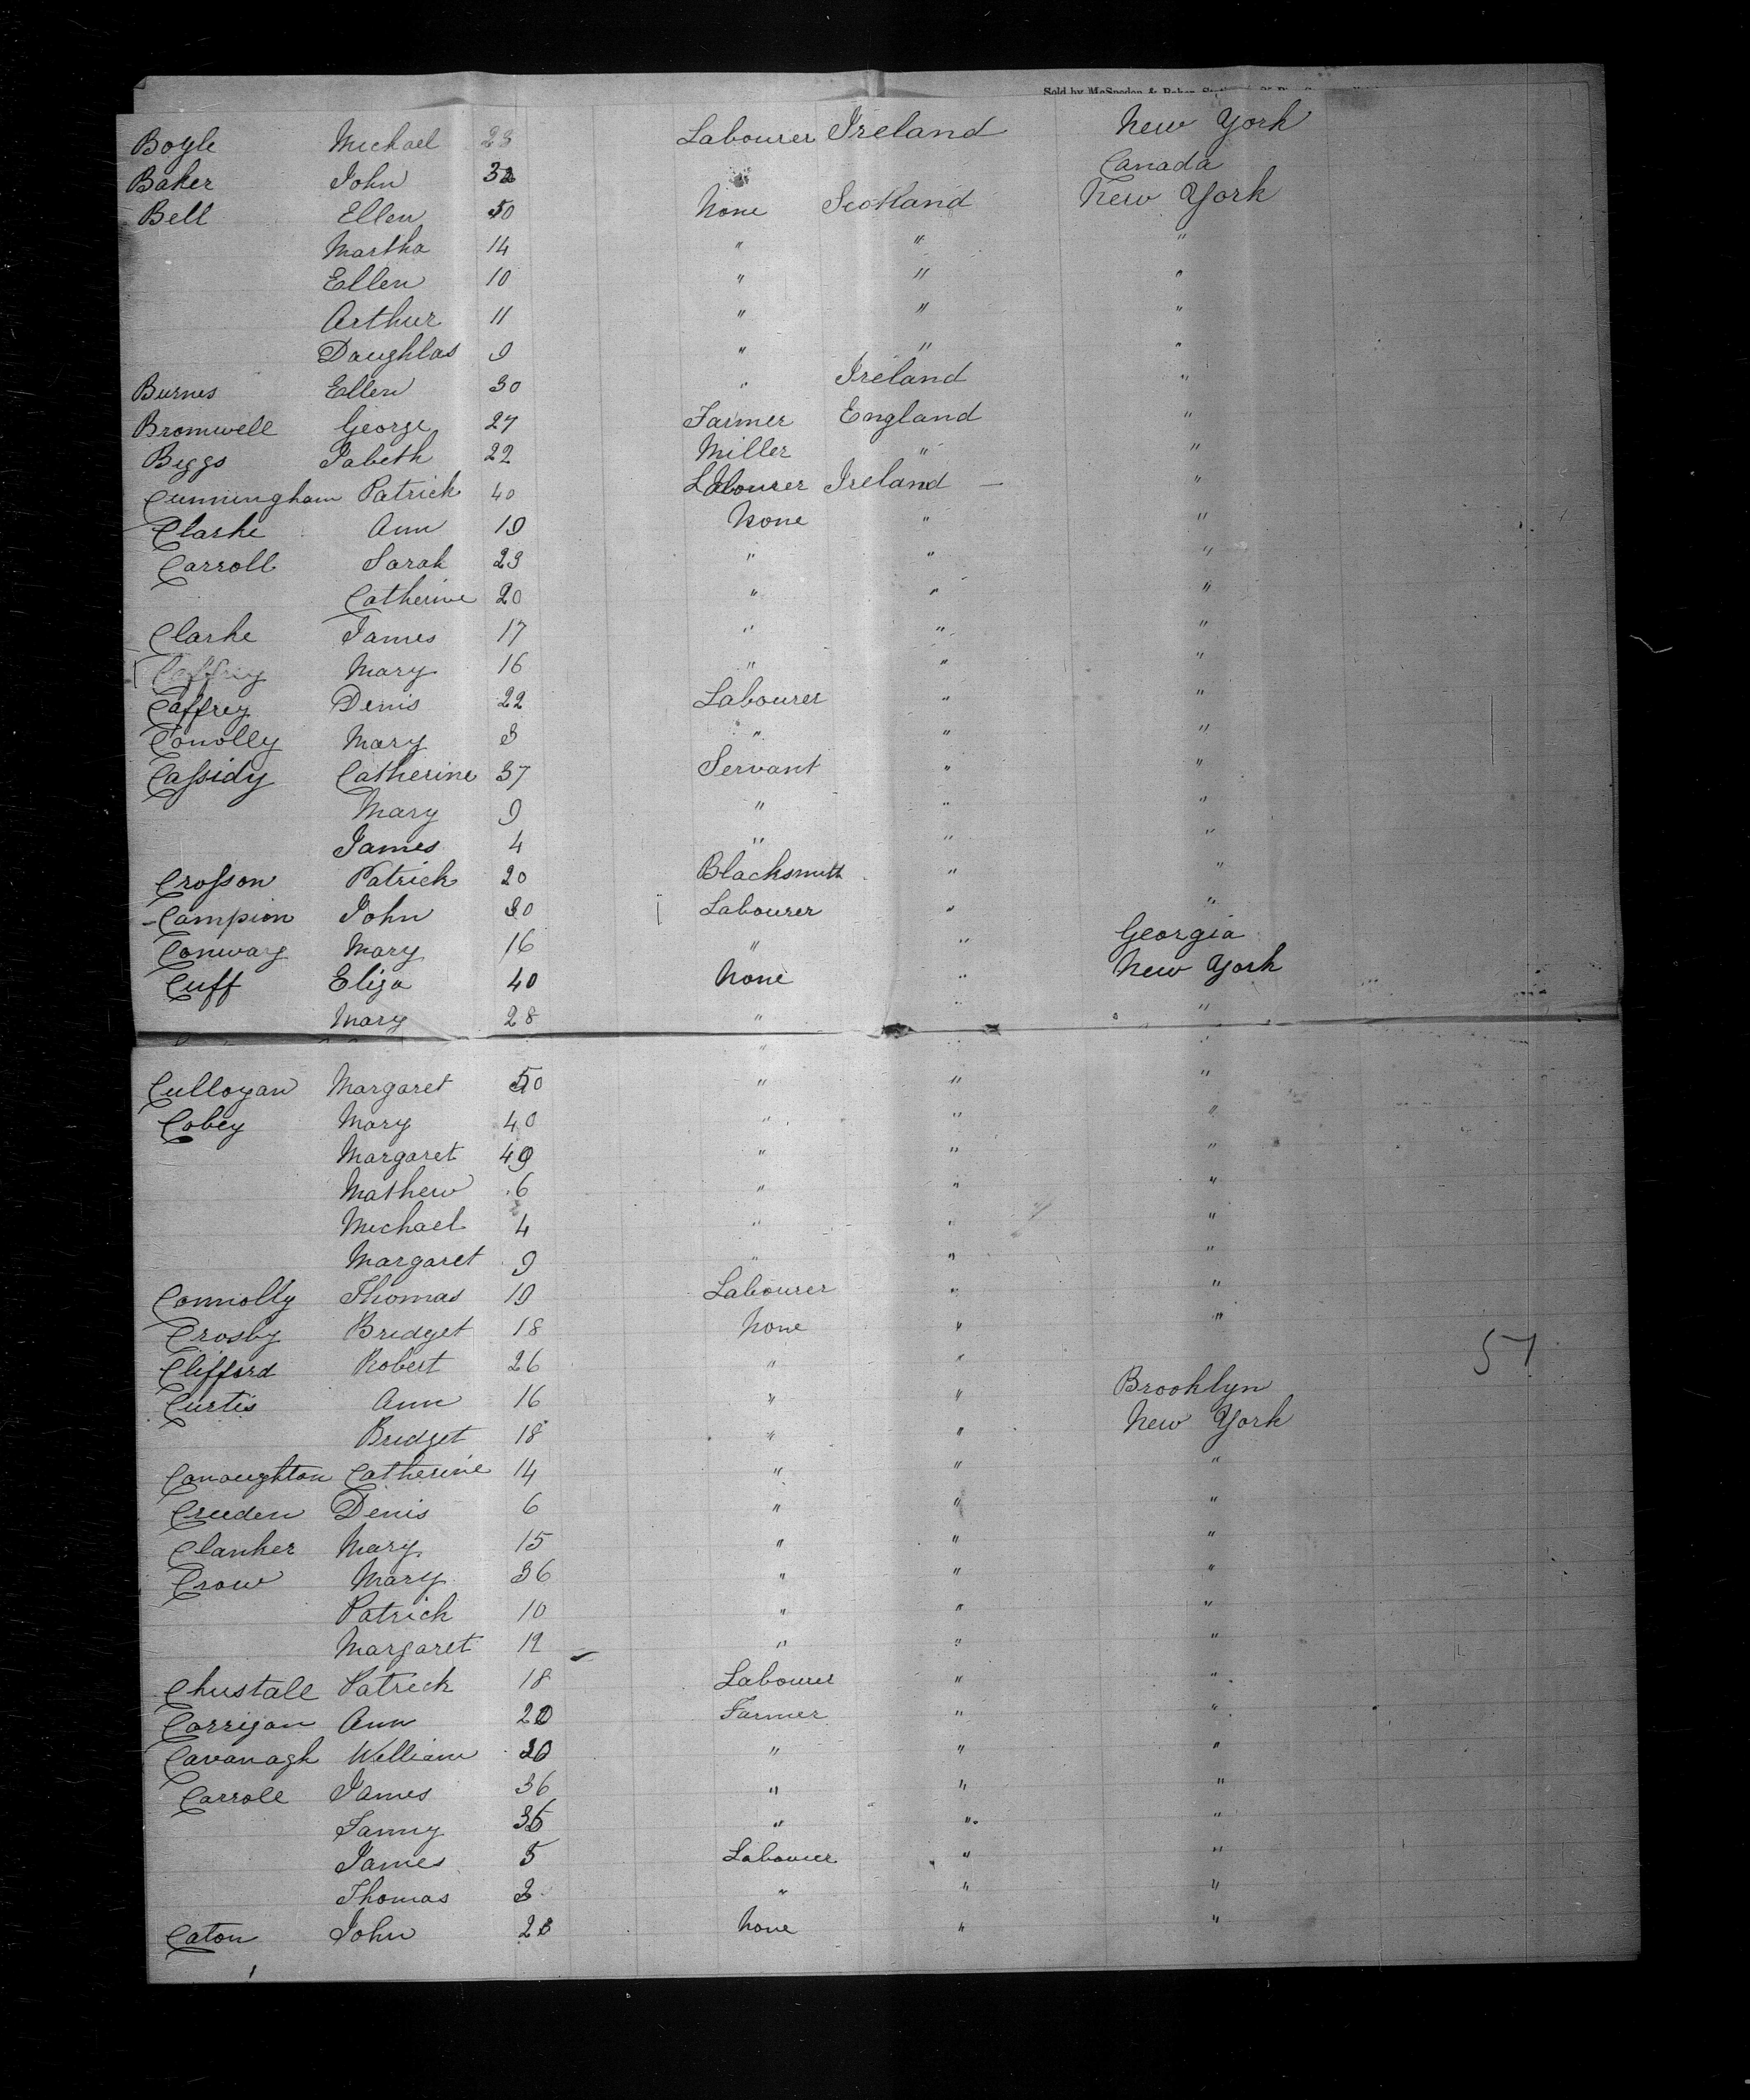 Sold by McSpedon & Baker,
Boyle Michael 23 Labourer Ireland New York
Baker John 32 " Canada
Bell Ellen 50 None Scotland New York
Martha 14 " " "
Ellen 10 " " "
Arthur 11 " " "
Daughlas 9 " " "
Burnes Ellen 30 " Ireland "
Bromwell George 27 Farmer England "
Beggs Jabeth 22 Miller " "
Cunningham Patrick 40 Labourer Ireland — "
Clarke Ann 19 None " "
Carroll Sarah 23 " " "
Catherine 20 " " "
Clarke James 17 " " "
Caffrey Mary 16 " " "
Caffrey Denis 22 Labourer " "
Conolly Mary 8 " " "
Cassidy Catherine 37 Servant " "
Mary 9 " " "
James 4 " " "
Crosson Patrick 20 Blacksmith " "
Campion John 30 Labourer " "
Conway Mary 16 " " Georgia
Cuff Eliza 40 None " New York
Mary 28 " " "
" " "
Culloyan Margaret 50 " " "
Cobey Mary 40 " " "
Margaret 49 " " "
Mathew 6 " " "
Michael 4 " " "
Margaret 9 " " "
Connolly Thomas 19 Labourer " "
Crosby Bridget 18 None " "
Clifford Robert 26 " "
57
Curtis Ann 16 " " Brooklyn
Bridget 18 " " New York
Conoughton Catherine 14 " " "
Creeden Denis 6 " " "
Clanker Mary 15 " " "
Crow Mary 36 " " "
Patrick 10 " " "
Margaret 12 " " "
Chustall Patrick 18 Labourer " "
Corrigan Ann 20 Farmer " "
Cavanagh William 20 " " "
Carroll James 36 " " "
Fanny 35 " " "
James 5 Labourer " "
Thomas 2 " " "
Caton John 28 None " "